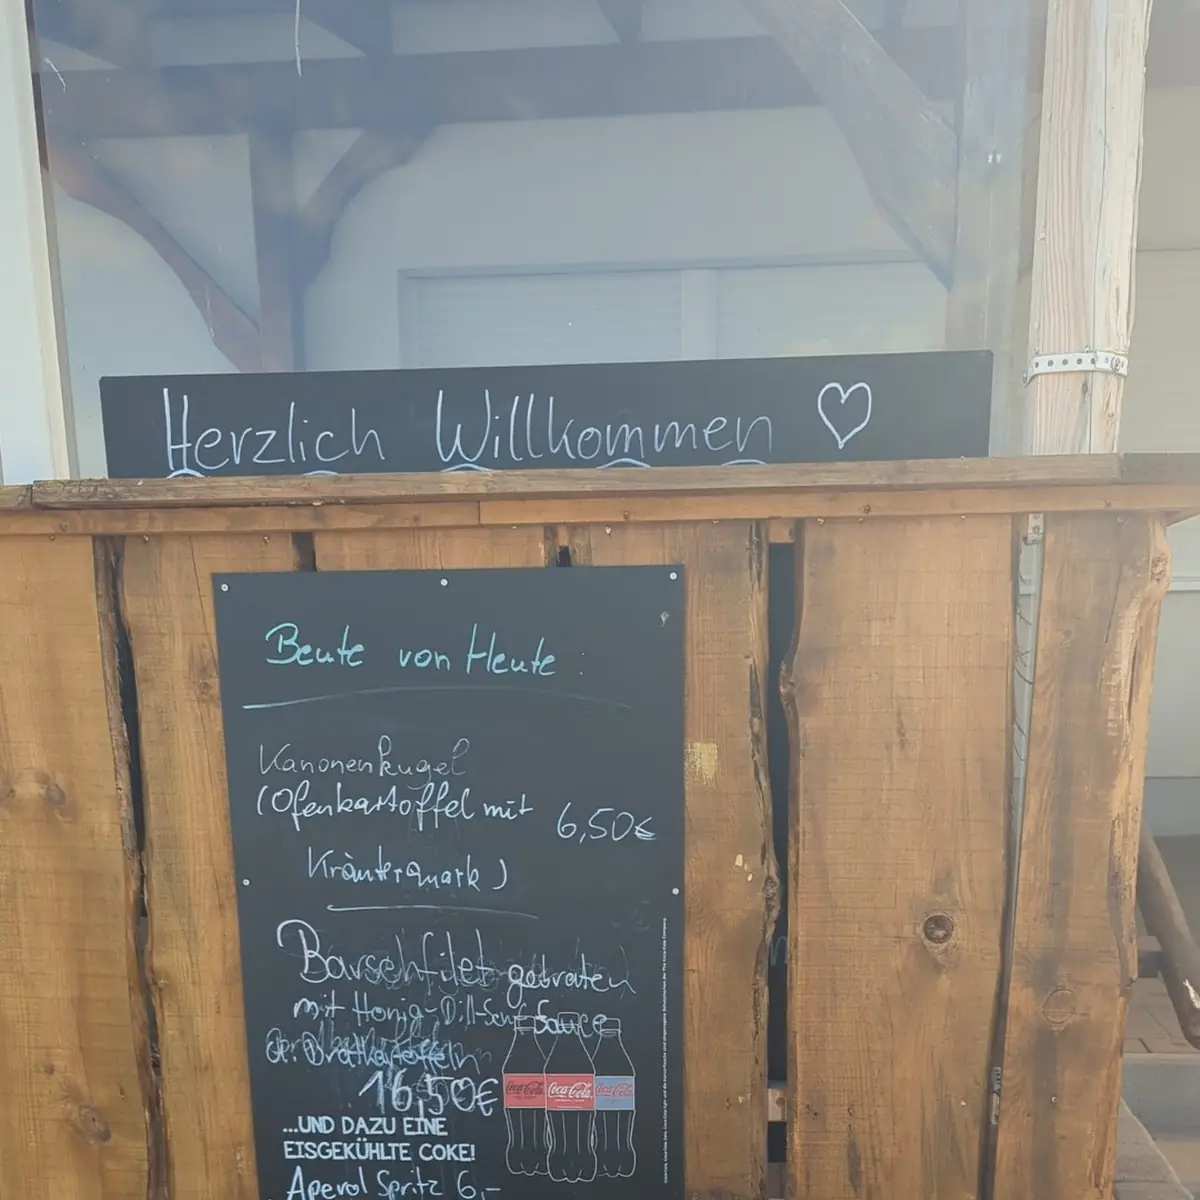 Herzlich Willkommen
Beute von Heute :
Kanonenkugel
(Ofenkartoffel mit
6,50€
Kräuterquark)
Barschfilet gebraten
mit Honig-Dill-Senf Sauce
Bratkartoffeln
16,50€
...UND DAZU EINE
EISGEKÜHLTE COKE!
Coca-Cola Coca-Cola Coca-Cola
Aperol Spritz 6,-